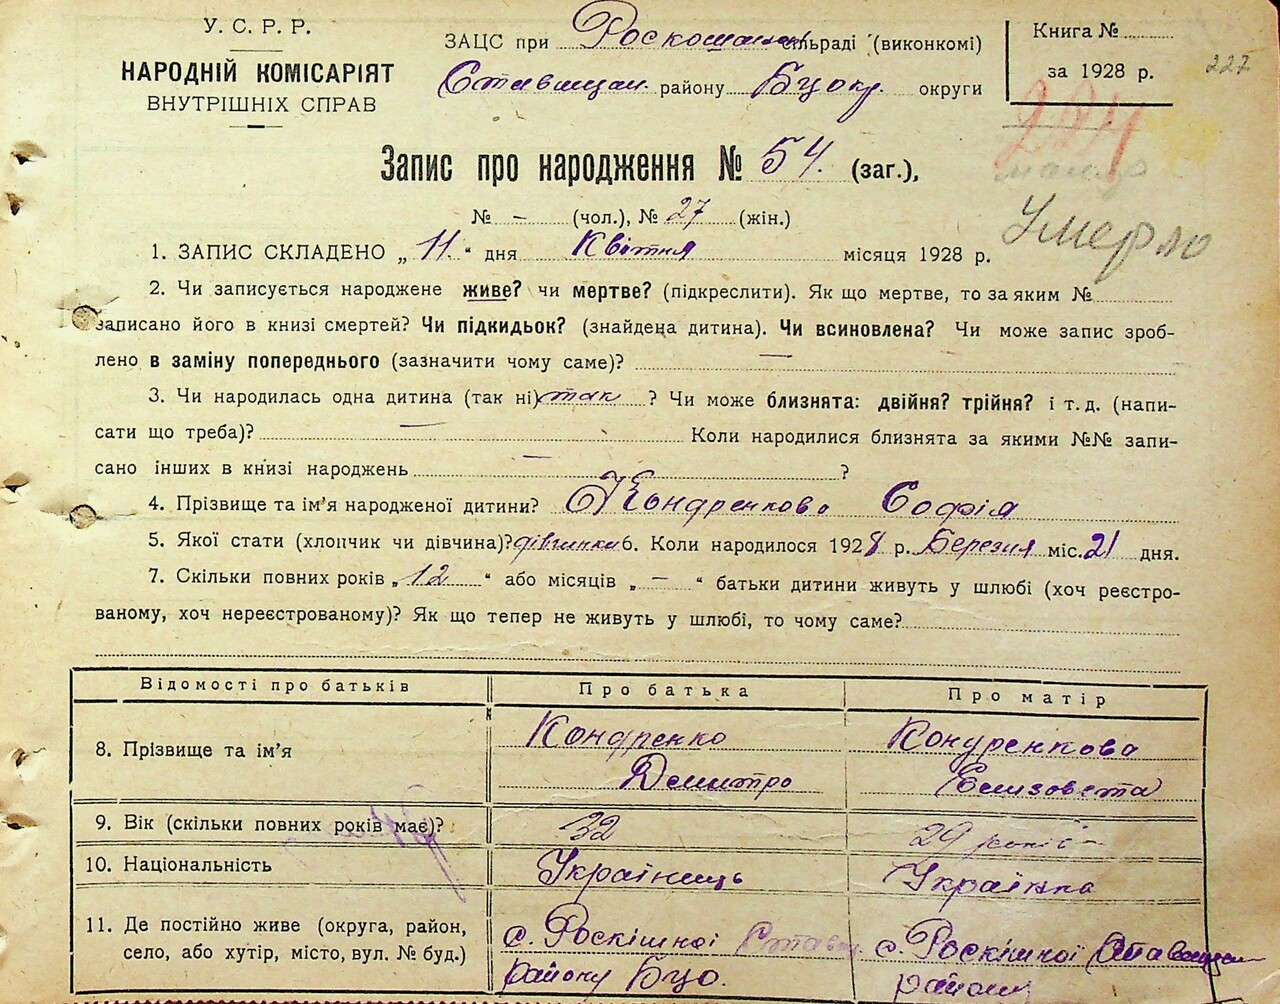 У. С. Р. Р.
НАРОДНІЙ КОМІСАРІЯТ
ВНУТРІШНІХ СПРАВ
ЗАЦС при Роскошан сільраді (виконкомі)
Ставищан. району Бцокр. округи
Книга №
за 1928 р.
227
224
Умерло
Запис про народження № 54. (заг.),
№ – (чол.), № 27 (жін.)
1. ЗАПИС СКЛАДЕНО „ 11. “ дня Квітня місяця 1928 р.
2. Чи записується народжене живе? чи мертве? (підкреслити). Як що мертве, то за яким №
записано його в книзі смертей? Чи підкидьок? (знайдеца дитина). Чи всиновлена? Чи може запис зроб-
лено в заміну попереднього (зазначити чому саме)? —
3. Чи народилась одна дитина (так ні) так ? Чи може близнята: двійня? трійня? і т. д. (напи-
сати що треба)? — Коли народилися близнята за якими №№ запи-
сано інших в книзі народжень — ?
4. Прізвище та ім'я народженої дитини? Кондренкова Софія
5. Якої стати (хлопчик чи дівчина)? дівчинка 6. Коли народилося 1928 р. Березня міс. 21 дня.
7. Скільки повних років „ 12 “ або місяців „ – “ батьки дитини живуть у шлюбі (хоч реєстро-
ваному, хоч нереєстрованому)? Як що тепер не живуть у шлюбі, то чому саме?
Відомості про батьків Про батька Про матір
8. Прізвище та ім'я Кондренко Дмитро Кондренкова Елизовета
9. Вік (скільки повних років має)? 32 29 років
10. Національність Українець Українка
11. Де постійно живе (округа, район,
село, або хутір, місто, вул. № буд.)
с. Роскішної Ставищ
району Бцо.
с. Роскішної Ставищан
району